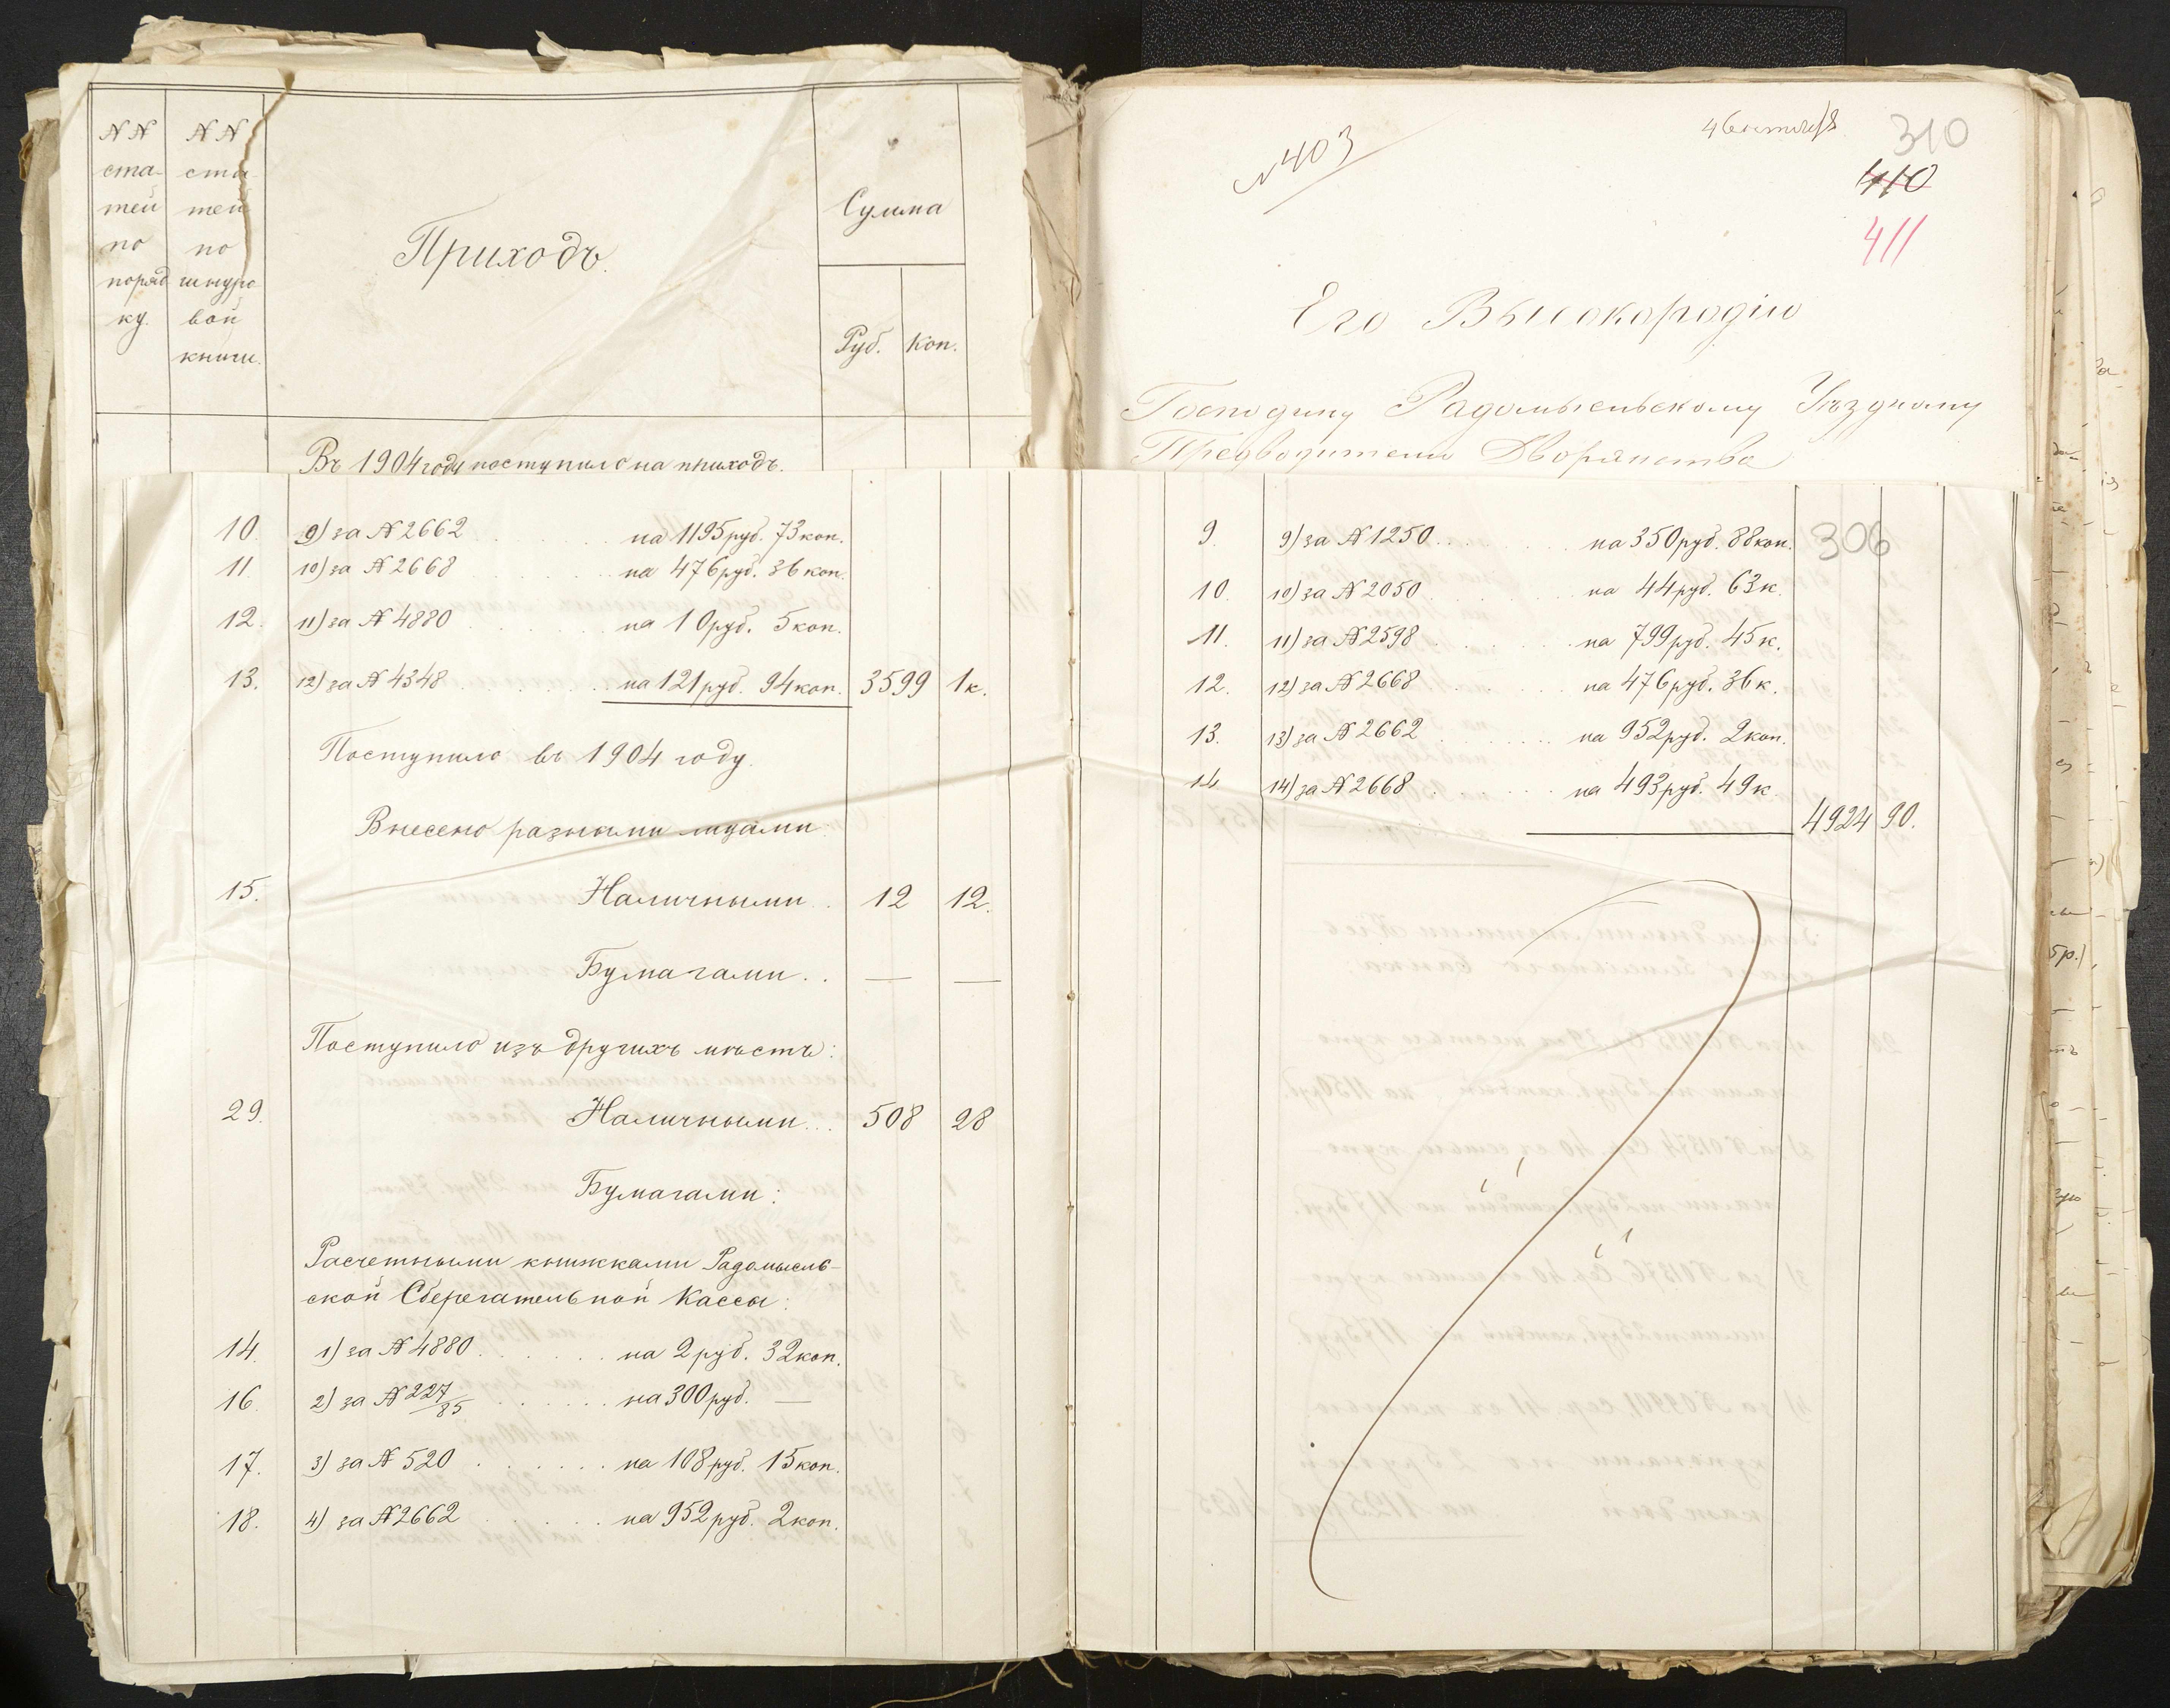 NN NN
ста- ста-
тей тей
по по
поряд шнуро
ку. вой
книги.
Приходъ.
Сумма
Руб. Коп.
Въ 1904 году поступило на приходъ.
10. 9) за N 2662 . . . . . на 1195 руб. 73 коп.
11. 10) за N 2668 . . . . . на 476 руб. 36 коп.
12. 11) за N 4880 . . . . . на 10 руб. 5 коп.
13. 12) за N 4348 . . . . . на 121 руб. 94 коп. 3599 1 к.
Поступило въ 1904 году.
Внесено разными лицами:
15. Наличными . 12 12.
Бумагами . . — —
Поступило изъ другихъ мѣстъ:
29. Наличными . . . 508 28
Бумагами:
Расчетными книжками Радомысль-
ской Сберегательной Кассы:
14. 1) за N 4880 . . . . . на 2 руб. 32 коп.
16. 2) за N 227/85 . . . . . на 300 руб. —
17. 3) за N 520 . . . . . на 108 руб. 15 коп.
18. 4) за N 2662 . . . . . на 952 руб. 2 коп.
N 403
310
410
411
Его Высокородію
Господину Радомысльскому Уѣздному
Предводителю Дворянства
9. 9) за N 1250 . . . . . на 350 руб. 88 коп. 306
10. 10) за N 2050 . . . . . на 44 руб. 63 к.
11. 11) за N 2598 . . . . . на 799 руб. 45 к.
12. 12) за N 2668 . . . . . на 476 руб. 36 к.
13. 13) за N 2662 . . . . . на 952 руб. 2 коп.
14 14) за N 2668 . . . . . на 493 руб. 49 к.
4924 90.